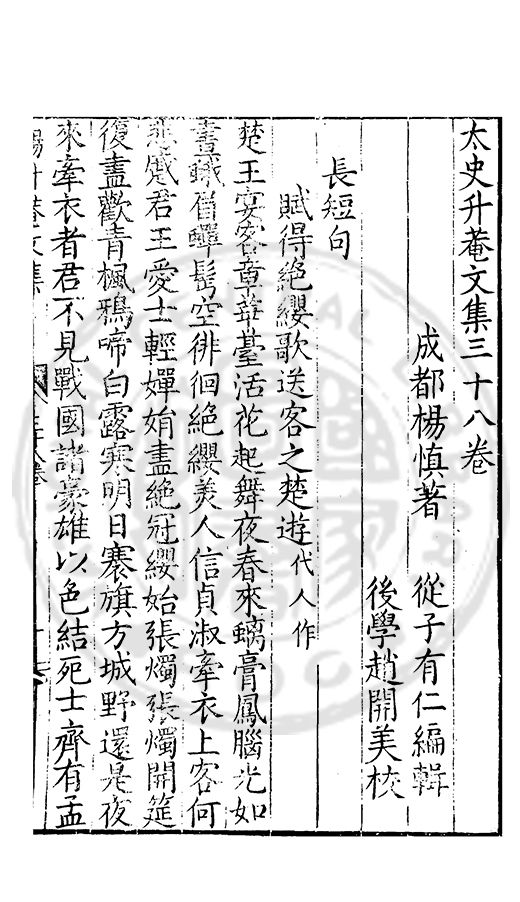 太史升菴文集三十八卷
成都楊慎著
從子有仁編輯
後學趙開美校
長短句
賦得絕纓歌送客之楚遊代人作
楚王宴客章華臺活花起舞夜春來蛾膏鳳腦光如
晝蛾眉蟬髩空徘徊絕纓美人信貞淑牽衣上客何
悲感君王愛士輕嬋娟盡絕冠纓始張燭張燭開筵
復盡歡青楓鴉啼白露寒明日褰旗方城野還是夜
來牽衣者君不見戰國諸豪雄以色結死士齊有孟